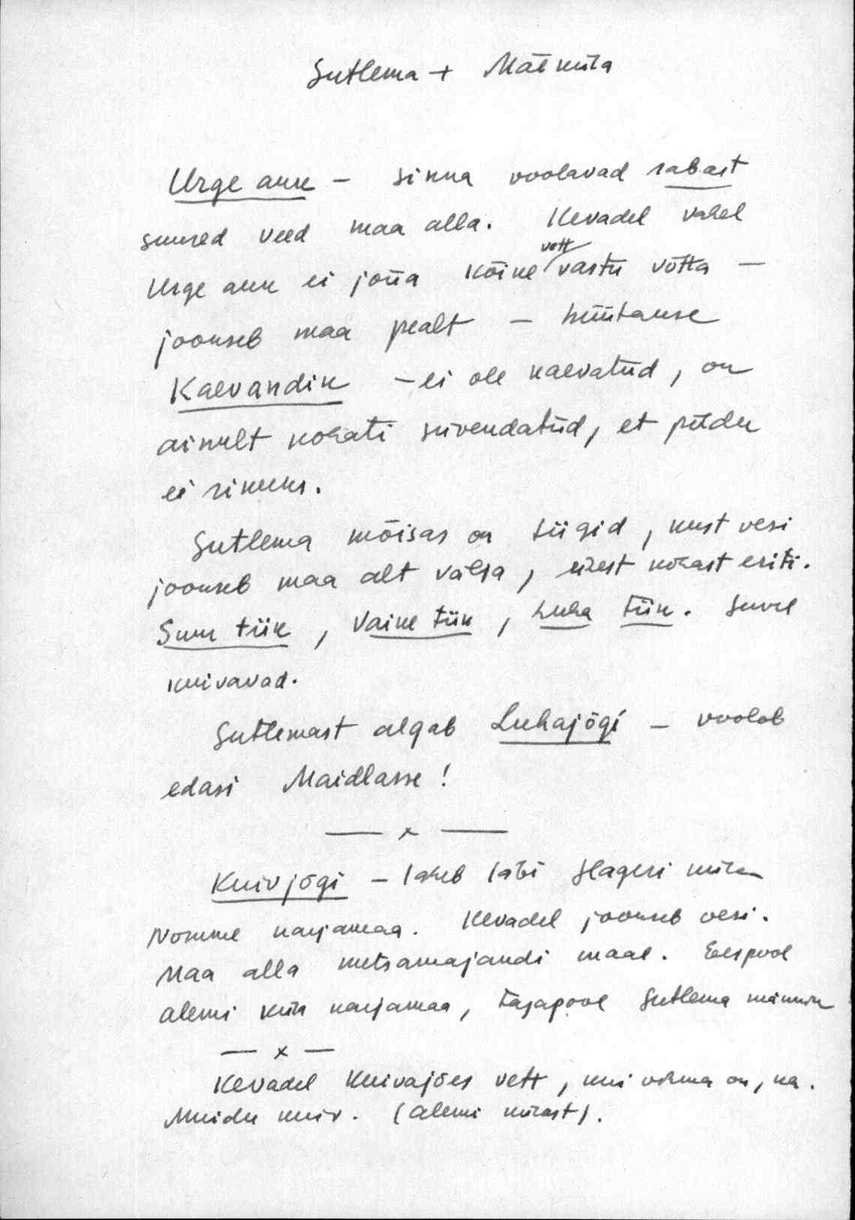 Sutlema + Mäeküla
Urge auk — sinna voolavad rabast
suured veed maa alla. Kevadel vahel
Urge auk ei jõua kõike vett vastu võtta —
jookseb maa pealt — hüütakse
Kaevandik — ei ole kaevatud, on
ainult kohati süvendatud, et põldu
ei rikuks.
Sutlema mõisas on tiigid, kust vesi
jookseb maa alt välja, ühest kohast eriti.
Suur tiik, Väike tiik, Luha tiik. Suvel
kuivavad.
Sutlemast algab Luhajõgi — voolab
edasi Maidlasse!
— x —
Kuivjõgi — läheb läbi Hageri küla
Nõmme karjamaa. Kevadel jookseb vesi.
Maa alla metsamajandi maal. Eespool
alemi küla karjamaa, tagapool Sutlema männik
— x —
Kevadel Kuivajões vett, kui vihma on, ka.
Muidu kuiv. (alemi külast).